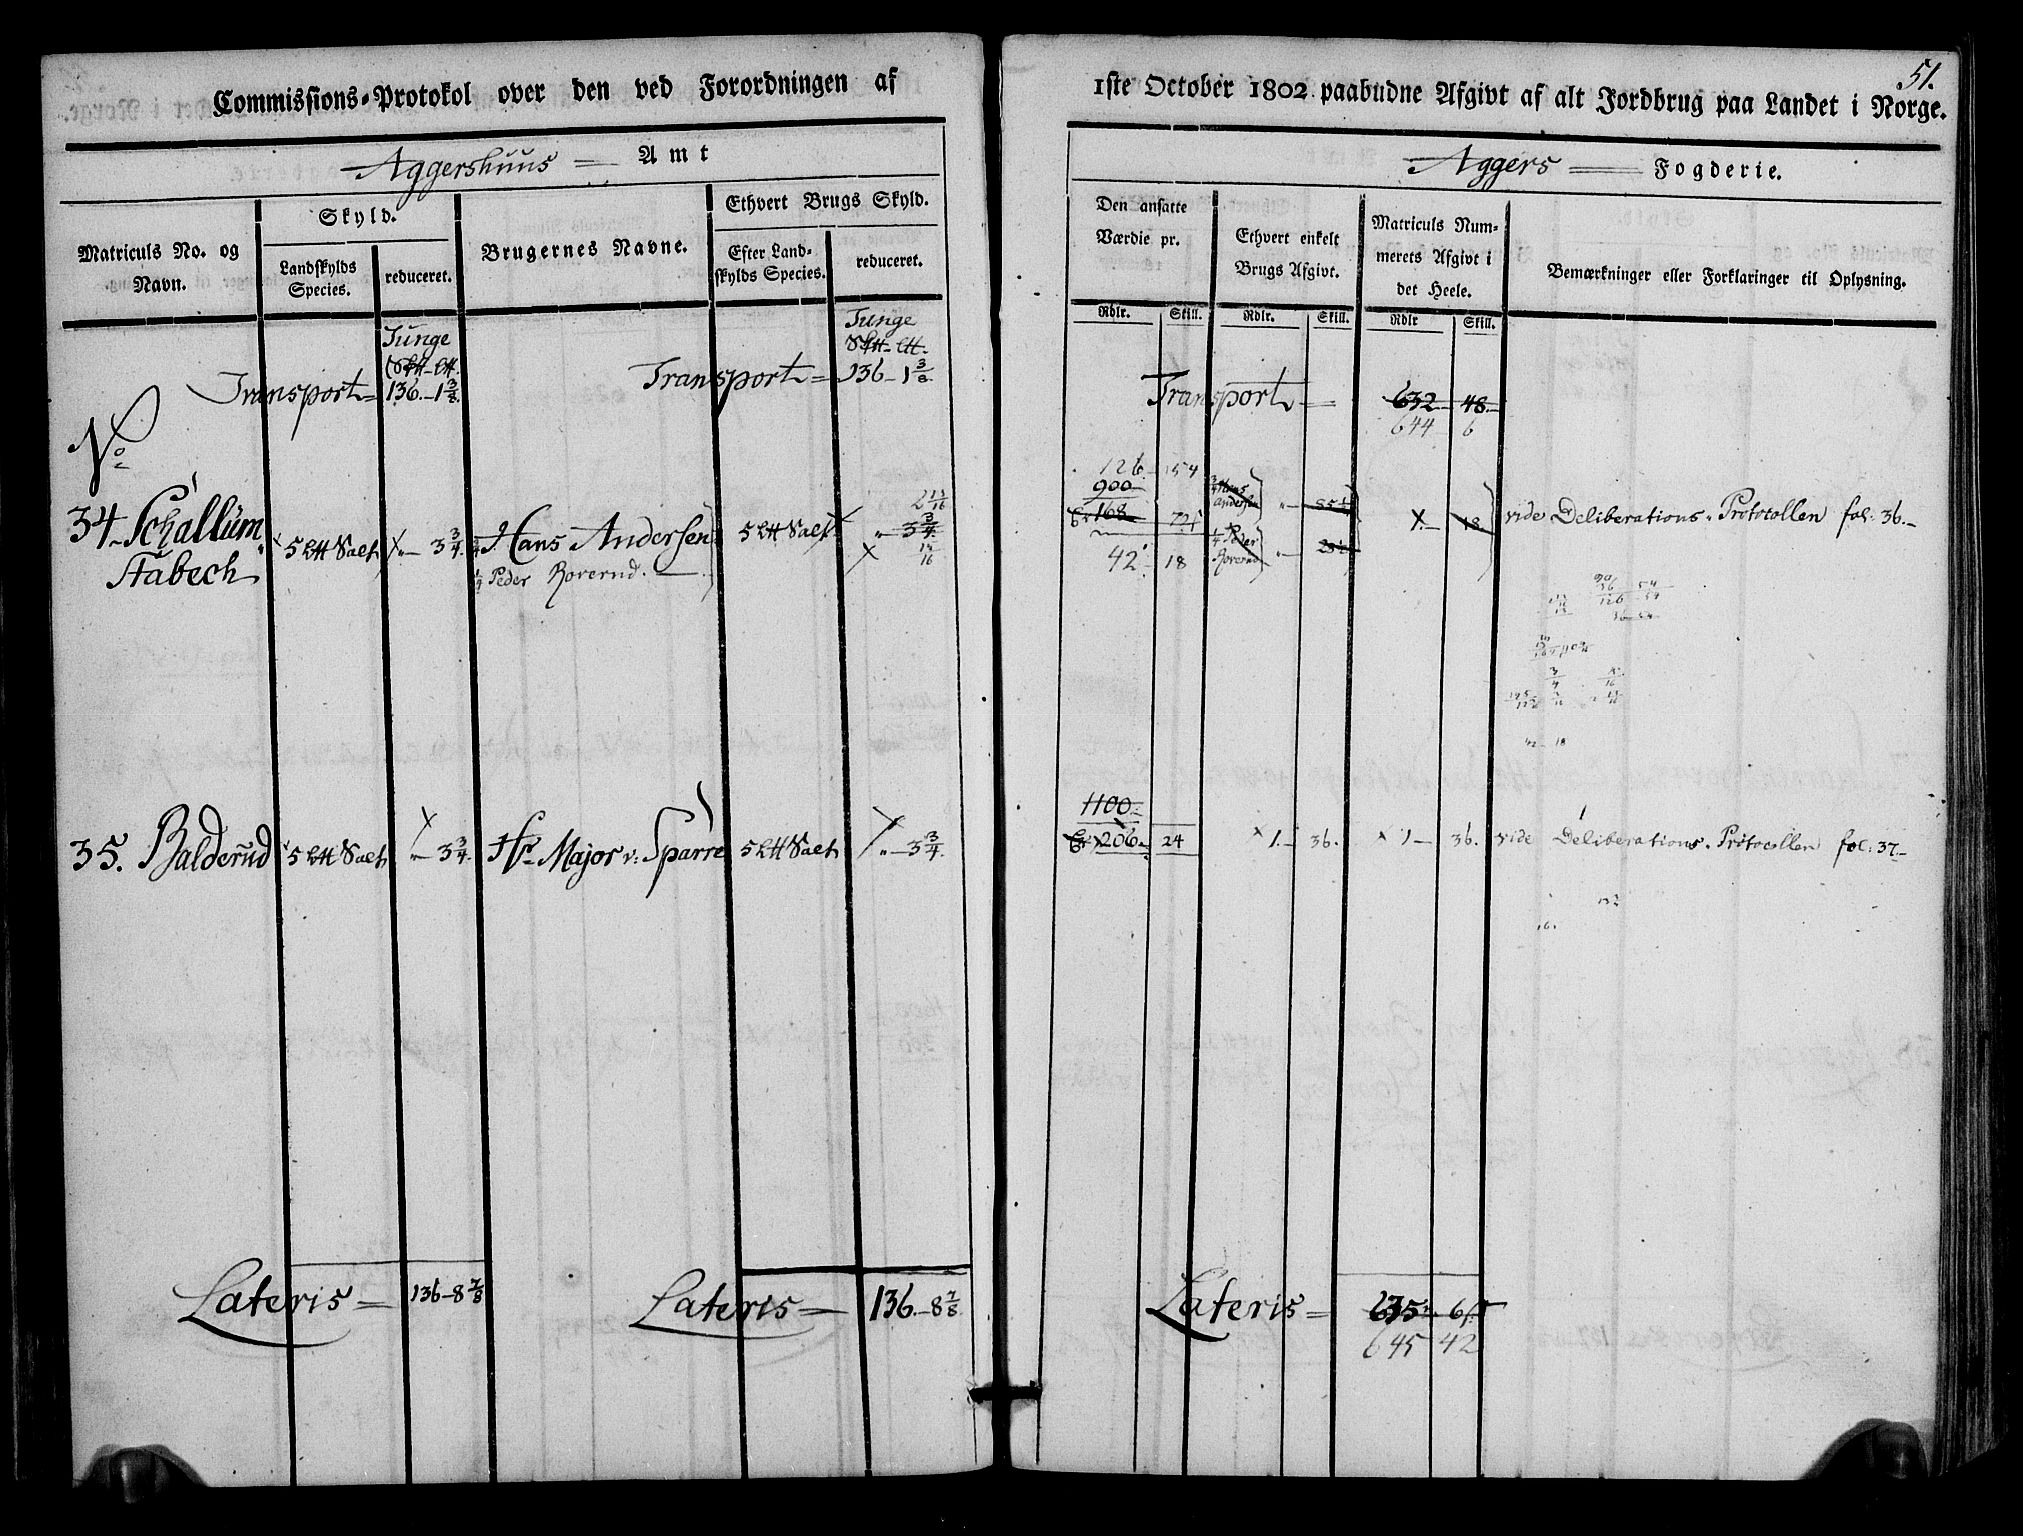 Commissions-Protokol over den ved Forordningen af
Aggershuus Amt
Matriculs No. og Navn.
Skyld.
Landskylds Species.
reduceret.
Brugernes Navne.
Ethvert Brugs Skyld.
Efter Landskylds Species.
reduceret.
Tunge
Tunge
Transport = 136.-1 3/8.
Transport = 136-1 3/8.
No
34 Schallum
Stabech
5 L# Salt
3 3/4.
3/4 Hans Andersen
1/4 Peder Roverud.
5 L# Salt
2 13/16
3 3/4.
15/16
35. Balderud
5 L# Salt
"-3 3/4.
Hr Major v: Sparre
5 L# Salt
"-3 3/4.
Lateris = 136-8 7/8
Lateris = 136.-8 7/8.
51.
1ste October 1802 paabudne Afgivt af alt Jordbrug paa Landet i Norge.
Aggers Fogderie.
Den ansatte Værdie pr.
Ethvert enkelt Brugs Afgivt.
Matriculs Nummerets Afgivt i det Heele.
Bemærkninger eller Forklaringer til Oplysning.
Rdlr. Skill. Rdlr. Skill. Rdlr Skill.
Transport = 632 48.
644 6
126 54
900
168
42 18
3/4 Hans Andersen
1/4 Peder Roverud
18.
vide Deliberations-Protocollen fol: 36.-
42 - 18
1100
206 24
1.- 36.
1- 36.
vide Deliberations-Protocollen fol: 37.-
Lateris = 635
645 42